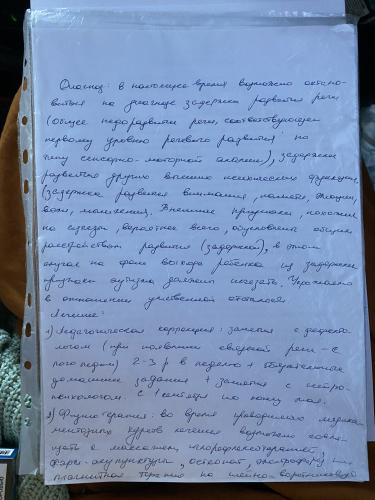 Диагноз: в настоящее время возможно остано-
виться на диагнозе задержка развития речи
(общее недоразвитие речи, соответствующее
первому уровню речевого развития по
типу сенсорно-моторной алалии), задержки
развития других высших психических функций
(задержка развития внимания, памяти, эмоций,
воли, мышления. Внешние признаки, похожие
на аутизм, вероятнее всего, обусловлены общим
расстройством развития (задержкой), в этом
случае на фоне выхода ребенка из задержки
признаки аутизма должны исчезать. Угрожаема
в отношении умственной отсталости
Лечение:
1) Педагогическая коррекция: занятия с дефекто-
логом (при наличии связной речи - с
логопедом) 2-3 р в неделю + обязательные
домашние задания + занятия с нейро-
психологом. С 1 сентября по конец мая.
2) Физиотерапия: во время проводимых медика-
ментозных курсов лечения возможно совме-
щать с массажем, иглорефлексотерапией,
акупунктура, остеопат, электрофорез
магнитная терапия на шейно-воротниковую